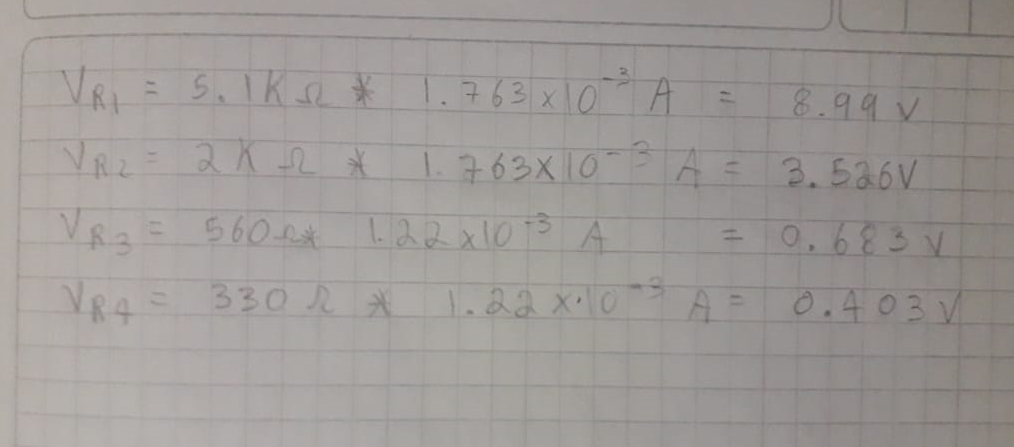 VR1 = 5.1KΩ * 1.763x10⁻³ A = 8.99 V
VR2 = 2KΩ * 1.763x10⁻³ A = 3.526V
VR3 = 560Ω* 1.22x10⁻³ A = 0.683 V
VR4 = 330Ω * 1.22x10⁻³ A = 0.403 V